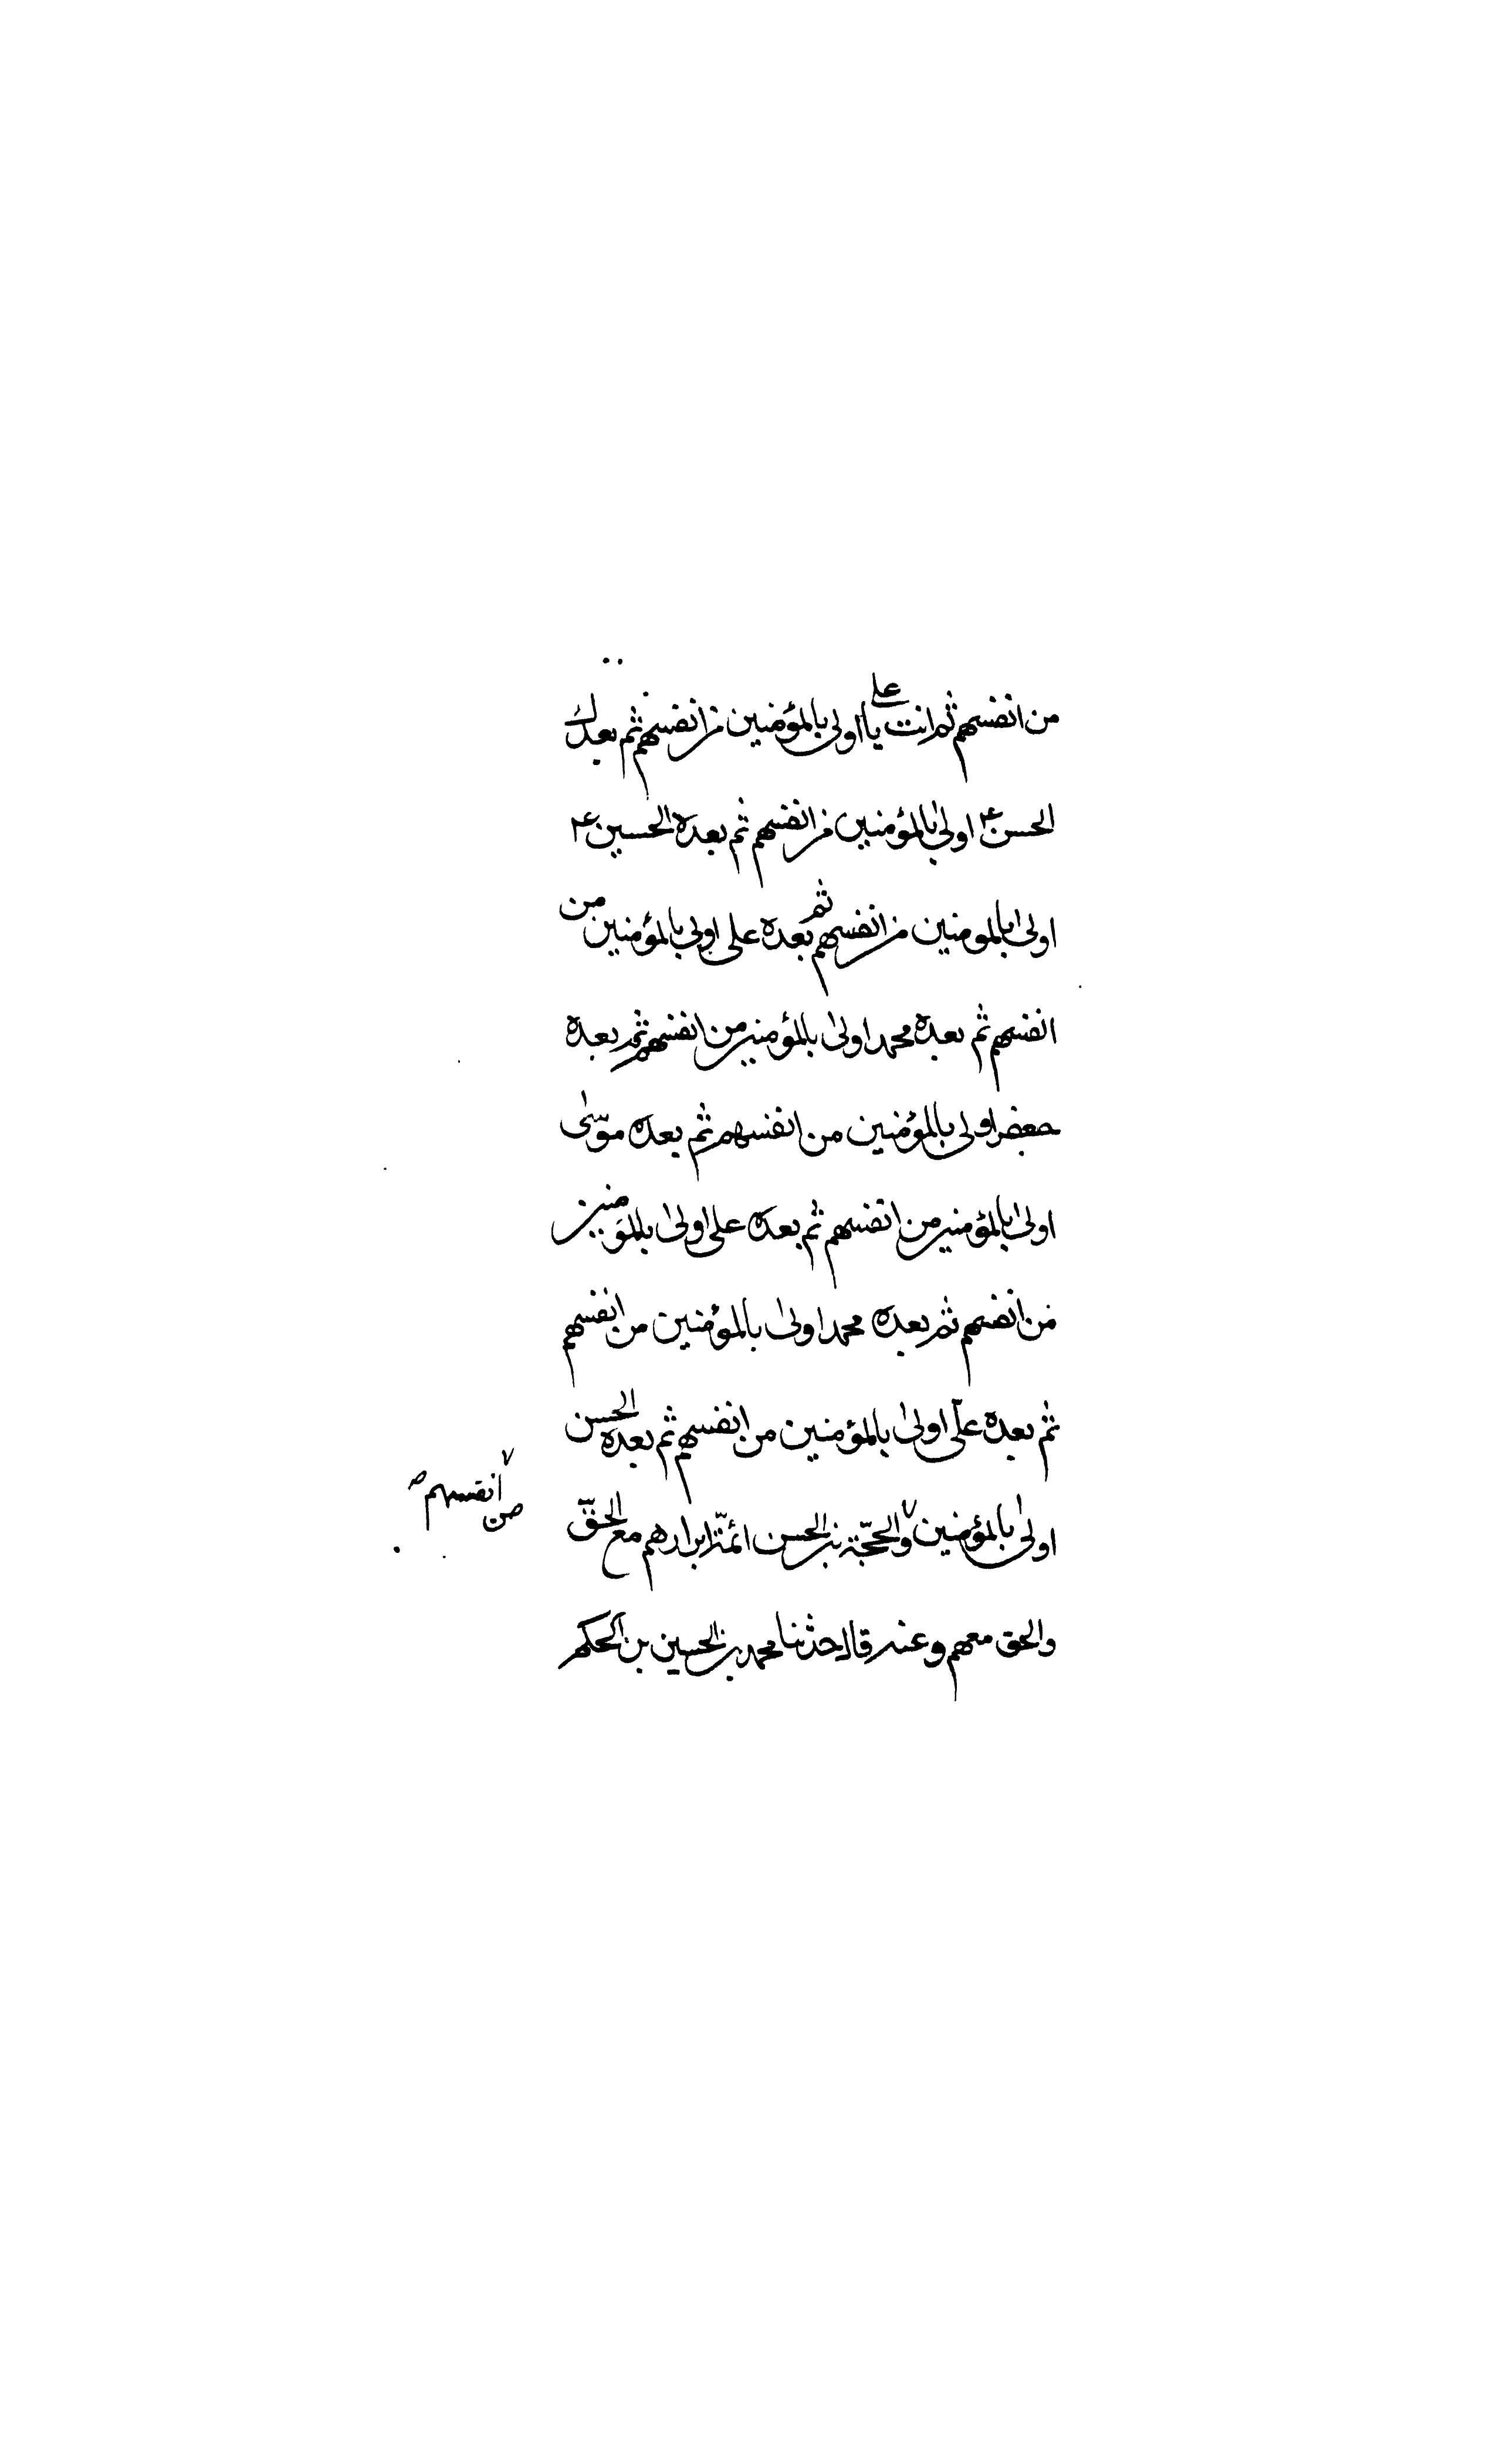 من انفسهم ثم انت يا علي اولى بالمؤمنين من انفسهم ثم بعدك
الحسن ع اولى بالمؤمنين من انفسهم ثم بعده الحسين ع
اولى بالمومنين من انفسهم ثم بعده على اولى بالمؤمنين من
انفسهم ثم بعده محمد اولى بالمؤمنين من انفسهم ثم بعده
جعفر اولى بالمؤمنين من انفسهم ثم بعده موسى
اولى بالمؤمنين من انفسهم ثم بعده على اولى بالمؤمنين
من انفسهم ثم بعده محمد اولى بالمؤمنين من انفسهم
ثم بعده علّى اولى بالمؤمنين من انفسهم ثم بعده الحسن
اولى بالمؤمنين والحجّة بن الحسن ائمّة ابرار هم مع الحقّ
من انفسهم
والحق معهم وعنه قال حدثنا محمد بن الحسين بن الحكم